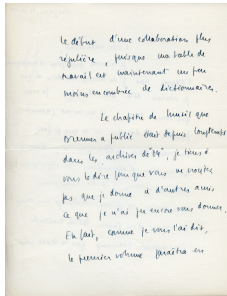 le début d'une collaboration plus
régulière, puisque ma table de
travail est maintenant un peu
moins encombrée de dictionnaires.
Le chapitre de Musil que
a publié était depuis longtemps
dans les archives de "84", je tiens à
vous le dire pour que vous ne croyiez
pas que je donne à d'autres amis
ce que je n'ai pu encore vous donner.
En fait, comme je vous l'ai dit,
le premier volume paraîtra en